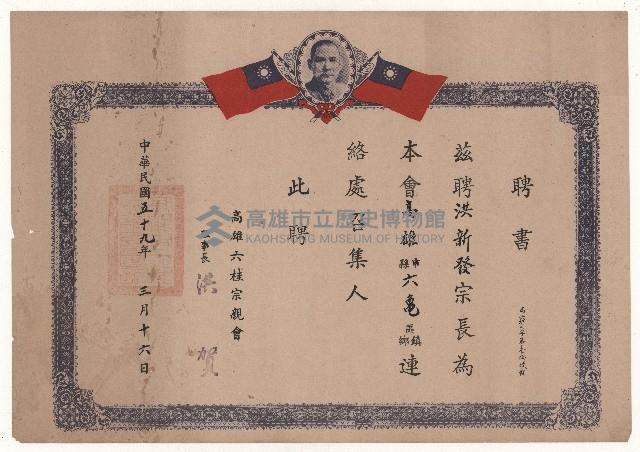 聘書
茲聘洪新發宗長為
本會高雄市縣六龜區鎮鄉連
絡處召集人
此聘
高雄六桂宗親會
理事長 洪賀
中華民國五十九年 三月十六日
高雄市立歷史博物館
KAOHSIUNG MUSEUM OF HISTORY